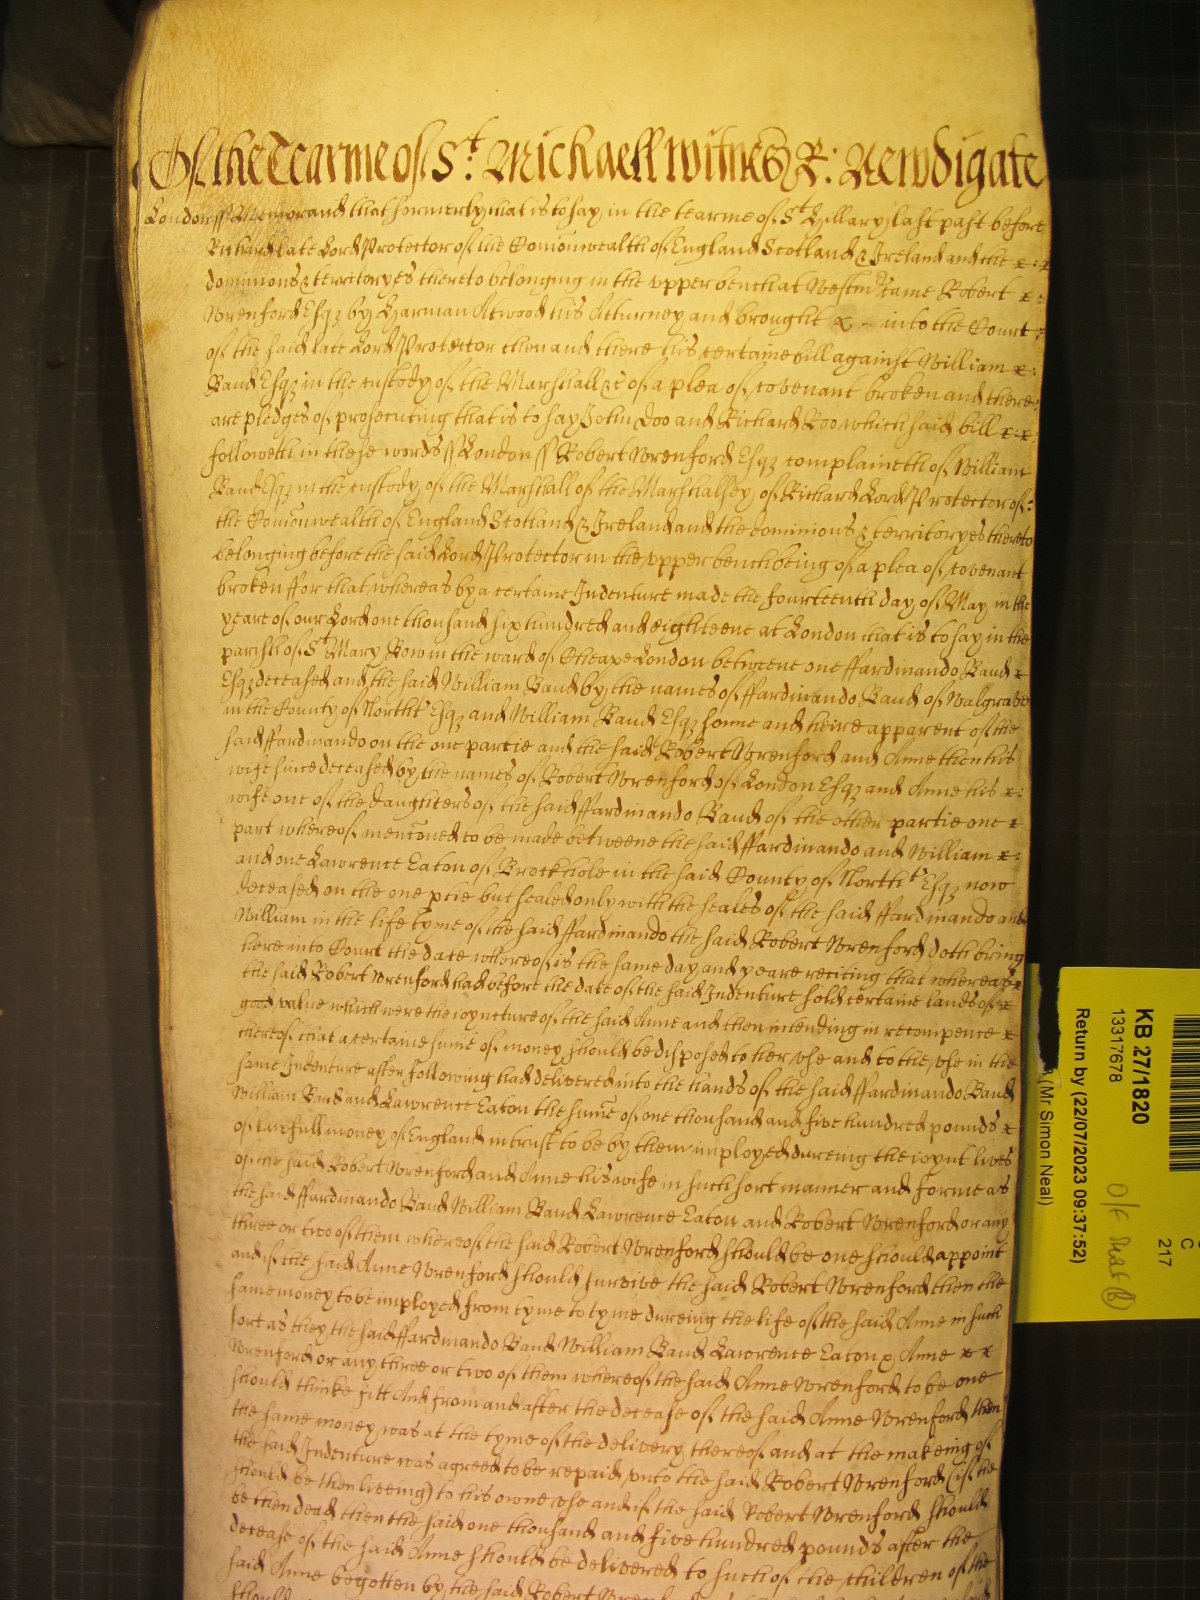 Of the Tearme of St. Michaell witness R: Newdigate
London ss Memorand that formerly that is to say in the tearme of St Hillary last past before
Richard late Lord Protector of the Comonwealth of England Scotland & Ireland and the x : x
dominions & territoryes thereto belonging in the vpper bench at Westmr came Robert x :
Wrenford Esqz by Harman Atwood his Atturney and brought x – into the Court :
of the said late Lord Protector then and there his certaine bill against William x :
Baud Esqz in the custody of the Marshall &c of a plea of covenant broken and there :
are pledges of prosecuting that is to say John Doo and Richard Roo which said bill x x :
followeth in these words ss London ss Robert Wrenford Esqz complaineth of William
Baud Esqz in the custody of the Marshall of the Marshalsey of Richard Lord Protector of :
the Comonwealth of England Scotland & Ireland and the dominions & territoryes thereto
belonging before the said Lord Protector in the vpper bench being of a plea of covenant
broken ffor that whereas by a certaine Indenture made the fourteenth day of May in the
yeare of our Lord one thousand six hundred and eighteene at London that is to say in the
parish of St Mary Bow in the ward of Cheape London betweene one ffardinando Baud x
Esqz deceased and the said William Baud by the names of ffardinando Baud of Walgrave
in the County of Northt Esqz and William Baud Esqz sonne and heire apparent of the
said ffardinando on the one partie and the said Robert Wrenford and Anne then his
wife since deceased by the names of Robert Wrenford of London Esqz and Anne his x :
wife one of the daughters of the said ffardinando Baud of the other partie one x
part whereof mencōned to be made betweene the said ffardinando and William x :
and one Lawrence Eaton of Brockhole in the said County of Northt Esqz now
deceased on the one ptie but sealed only with the seales of the said ffardinando and
William in the life tyme of the said ffardinando the said Robert Wrenford doth bring
here into Court the date whereof is the same day and yeare reciting that whereas x
the said Robert Wrenford had before the date of the said Indenture sold certaine lands of x
good value which were the ioyncture of the said Anne and then intending in recompence x
thereof that a certaine sume of money should be disposed to her vse and to the vse in the
same Indenture after following had delivered into the hands of the said ffardinando Baud
William Baud and Lawrence Eaton the sume of one thousand and five hundred pounds x
of lawfull money of England in trust to be by them imployed dureing the ioynt lives
of the said Robert Wrenford and Anne his wife in such sort manner and forme as
the said ffardinando Baud William Baud Lawrence Eaton and Robert Wrenford or any
three or two of them whereof the said Robert Wrenford should be one should appoint
and if the said Anne Wrenford should survive the said Robert Wrenford then the
same money to be imployed from tyme to tyme dureing the life of the said Anne in such
sort as they the said ffardinando Baud William Baud Lawrence Eaton & Anne x x
Wrenford or any three or two of them whereof the said Anne Wrenford to be one
should thinke fitt And from and after the decease of the said Anne Wrenford then
the same money was at the tyme of the delivery thereof and at the makeing of
the said Indenture was agreed to be repaid vnto the said Robert Wrenford (if he
should be then liveing) to his owne vse and if the said Robert Wrenford should
be then dead then the said one thousand and five hundred pounds after the
decease of the said Anne should be delivered to such of the children of the
said Anne begotten by the said Robert
KB 27/1820
13317678
Return by (22/07/2023 09:37:52)
(Mr Simon Neal)
C
217